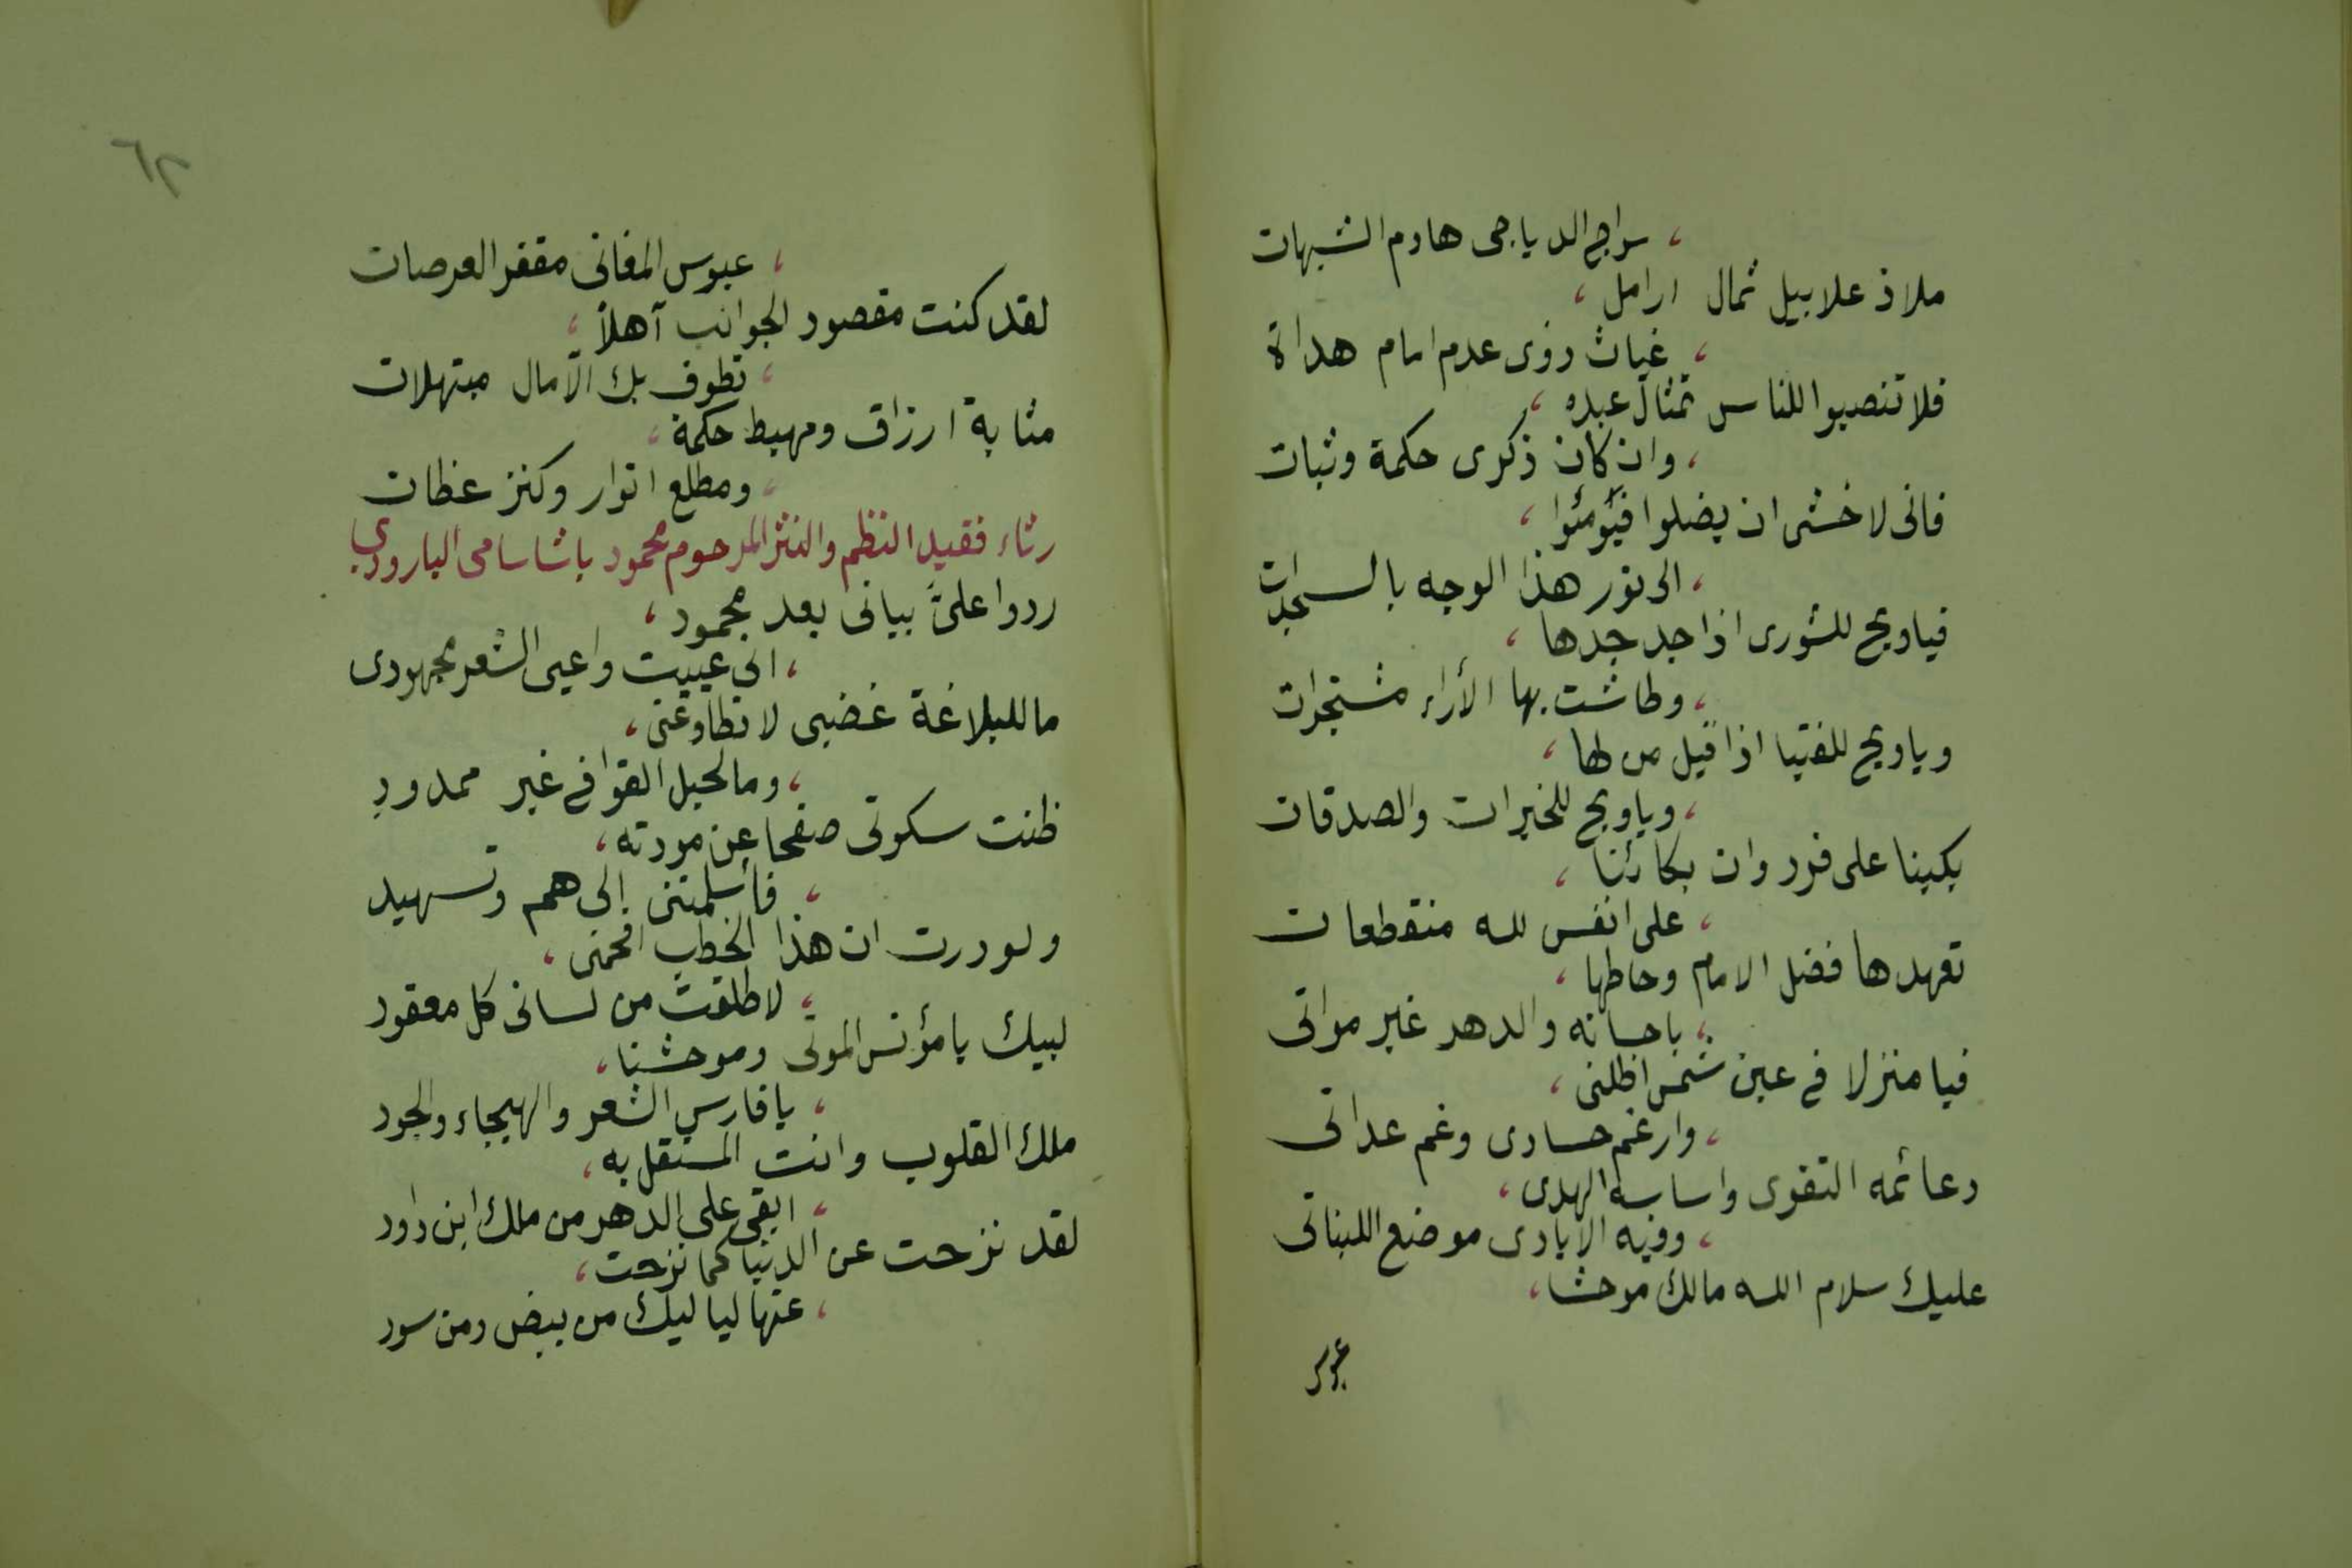 سراج الدياجى هادم الشبهات
ملاذ علابيل ثمال ارامل ،
، غياث ذوى عدم امام هداة
فلا تنصبوا للناس تمثال عبده ،
، وان كان ذكرى حكمة وثبات
فانى لاخشى ان يضلوا فيؤمئوا ،
، الى نور هذا الوجه بالسجدات
فياويح للشورى اذا جد جدها ،
، وطاشت بها الأراء مشتجرات
وياويح للفتيا اذا قيل من لها ،
، وياويح للخيرات والصدقات
بكينا على فرد وان بكائنا ،
، على انفس لله منقطعات
تعهدها فضل الامام وحاطها ،
، باحسانه والدهر غير مواتى
فيا منزلا فى عين شمس اظلنى ،
، وارغم حسادى وغم عداتى
دعائمه التقوى واساسه الهدى ،
، وفيه الايادى موضع اللبناتى
عليك سلام الله مالك موحشا ،
عبوس
٦٢
، عبوس المغانى مقفر العرصات
لقد كنت مقصود الجوانب آهلاً ،
، تطوف بك الآمال مبتهلات
مثابة ارزاق ومهبط حكمة ،
، ومطلع انوار وكنز عظات
رثاء فقيد النظم والنثر المرحوم محمود باشا سامى البارودى
ردوا علىَّ بيانى بعد محمود ،
، انى عييت واعيى الشعر مجهودى
ما للبلاغة غضبى لا تطاوعنى ،
، وما لحبل القوافى غير ممدودِ
ظنت سكوتى صفحا عن مودته ،
، فأسلمتنى إلى هم وتسهيد
ولو درت ان هذا الخطب افحمنى ،
، لاطلقت من لسانى كل معقود
لبيك يا مؤنس الموتى وموحشنا ،
، يا فارس الشعر والهيجاء والجود
ملك القلوب وانت المستقل به ،
، ابقى على الدهر من ملك ابن داود
لقد نزحت عن الدنيا كما نزحت ،
، عنها لياليك من بيض ومن سود